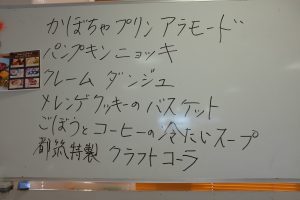 かぼちゃプリン アラモード
パンプキンニョッキ
クレーム ダンジュ
メレンゲクッキーのバスケット
ごぼうとコーヒーの冷たいスープ
都筑特製 クラフトコーラ